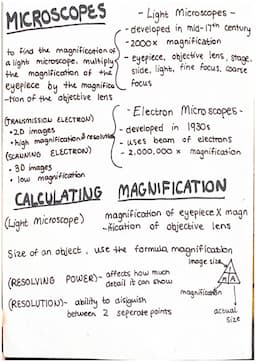 MICROSCOPES
- Light Microscopes -
- developed in mid-17th century
- 2000x magnification
- eyepiece, objective lens, stage,
slide, light, fine focus, coarse
focus
to find the magnification of
a light microscope, multiply
the magnification of the
eyepiece by the magnifica
-tion of the objective lens
- Electron Microscopes -
- developed in 1930s
- uses beam of electrons
- 2,000,000 x magnification
(TRANSMISSION ELECTRON)
• 2D images
• high magnification & resolution
(SCANNING ELECTRON)
• 3D images
• low magnification
CALCULATING MAGNIFICATION
(Light Microscope)
magnification of eyepiece X magn
-ification of objective lens
Size of an object, use the formula, magnification
image size
I
M A
magnification
actual
size
(RESOLVING POWER) - affects how much
detail it can show
(RESOLUTION) - ability to disiguish
between 2 seperate points